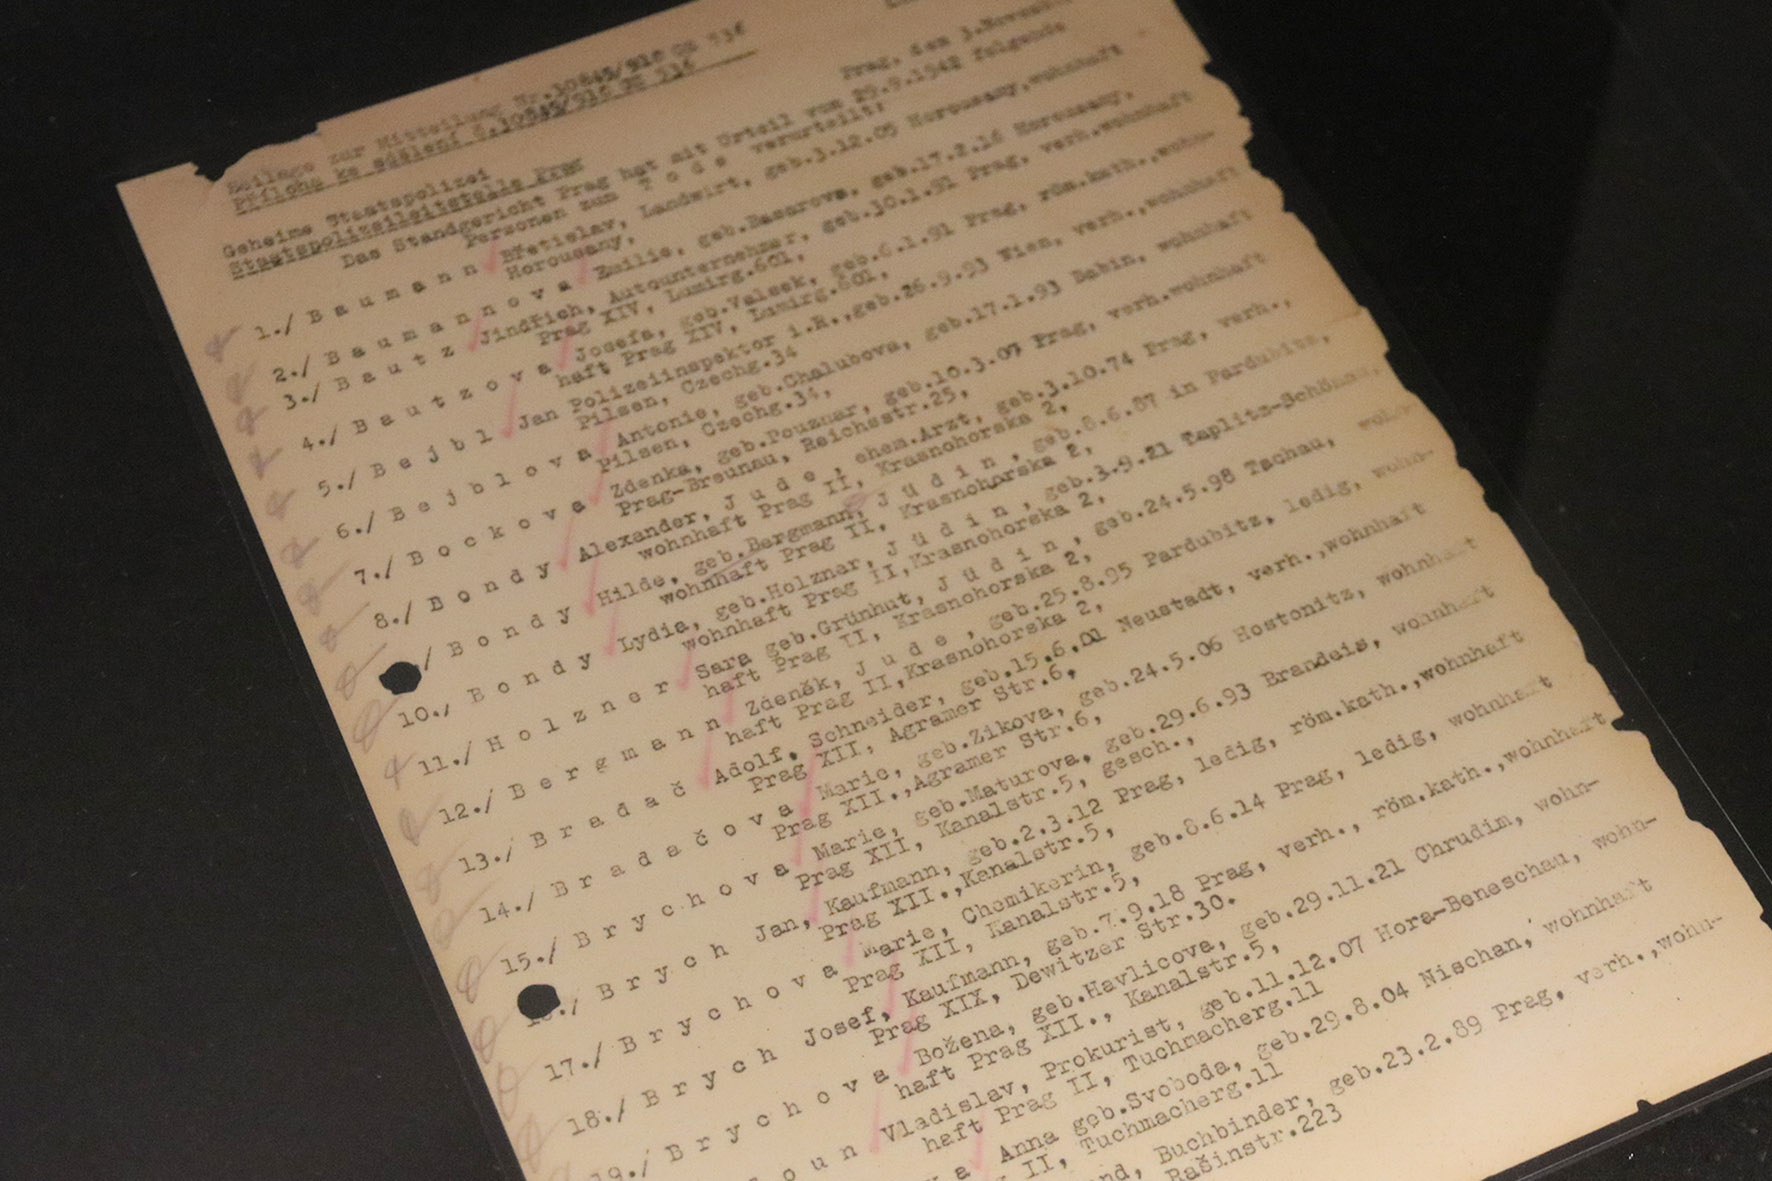 Beilage zur Mitteilung Nr.10645/918 ga 936
Příloha ke sdělení č.10645/918
Prag, den 3.November
Geheime Staatspolizei
Staatspolizeileitstelle Prag
Das Standgericht Prag hat mit Urteil vom 29.9.1942 folgende
Personen zum T o d e verurteilt:
1./ B a u m a n n Břetislav, Landwirt, geb.3.12.05 Horousany,wohnhaft
Horousany,
2./ B a u m a n n o v a Emilie, geb.Basarova, geb.17.2.16 Horousany,
3./ B a u t z Jindřich, Autounternehmer, geb.30.1.91 Prag, verh.wohnhaft
Prag XIV, Lumirg.601,
4./ B a u t z o v a Josefa, geb.Valsek, geb.6.1.91 Prag, röm.kath.,wohn-
haft Prag XIV, Lumirg.601,
5./ B e j b l Jan Polizeiinspektor i.R.,geb.26.9.93 Wien, verh.,wohnhaft
Pilsen, Czechg.34
6./ B e j b l o v a Antonie, geb.Chalubova, geb.17.1.93 Dabin, wohnhaft
Pilsen, Czechg.34,
7./ B o c k o v a Zdenka, geb.Pouznar, geb.10.3.07 Prag, verh.wohnhaft
Prag-Breunau, Reichsstr.25,
8./ B o n d y Alexander, J u d e , ehem.Arzt, geb.3.10.74 Prag, verh.,
wohnhaft Prag II, Krasnohorska 2,
/ B o n d y Hilde, geb.Bergmann, J ü d i n , geb.8.6.87 in Pardubitz,
wohnhaft Prag II, Krasnohorska 2,
10./ B o n d y Lydia, geb.Holzner, J ü d i n , geb.3.9.21 Teplitz-Schönau,
wohnhaft Prag II,Krasnohorska 2,
11./ H o l z n e r Sara geb.Grünhut, J ü d i n , geb.24.5.98 Tachau, wohn-
haft Prag II, Krasnohorska 2,
12./ B e r g m a n n Zdeněk, J u d e , geb.25.8.95 Pardubitz, ledig, wohn-
haft Prag II,Krasnohorska 2,
13./ B r a d a č Adolf, Schneider, geb.15.6.01 Neustadt, verh.,wohnhaft
Prag XII, Agramer Str.6,
14./ B r a d a č o v a Marie, geb.Zikova, geb.24.5.06 Hostonitz, wohnhaft
Prag XII.,Agramer Str.6,
15./ B r y c h o v a Marie, geb.Maturova, geb.29.6.93 Brandeis, wohnhaft
Prag XII, Kanalstr.5, gesch.,
./ B r y c h Jan, Kaufmann, geb.2.3.12 Prag, ledig, röm.kath.,wohnhaft
Prag XII.,Kanalstr.5,
17./ B r y c h o v a Marie, Chemikerin, geb.8.6.14 Prag, ledig, wohnhaft
Prag XII, Kanalstr.5,
18./ B r y c h Josef, Kaufmann, geb.7.9.18 Prag, verh., röm.kath.,wohnhaft
Prag XIX, Dewitzer Str.30.
19./ B r y c h o v a Božena, geb.Havlicova, geb.29.11.21 Chrudim, wohn-
haft Prag XII., Kanalstr.5,
o u n Vladislav, Prokurist, geb.11.12.07 Hora-Beneschau, wohn-
haft Prag II, Tuchmacherg.11
a Anna geb.Svoboda, geb.29.8.04 Nischan, wohnhaft
II, Tuchmacherg.11
nd, Buchbinder, geb.23.2.89 Prag, verh.,wohn-
Rašinstr.223